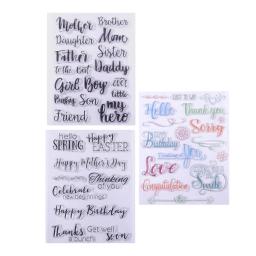 Mother Brother
Daughter Mom
Father Sister
to the best Daddy
Girl Boy Great
Little
Baby Son my
Friend hero
Hello Happy
SPRING EASTER
Happy Mother's Day
Thinking
of you
Celebrate
new beginnings
Happy Birthday
Thanks Get well
a bunch! soon
JUST TO SAY
Hello Thank you
Sorry
Birthday
Thinking
You
Love
Congratulation
Smile